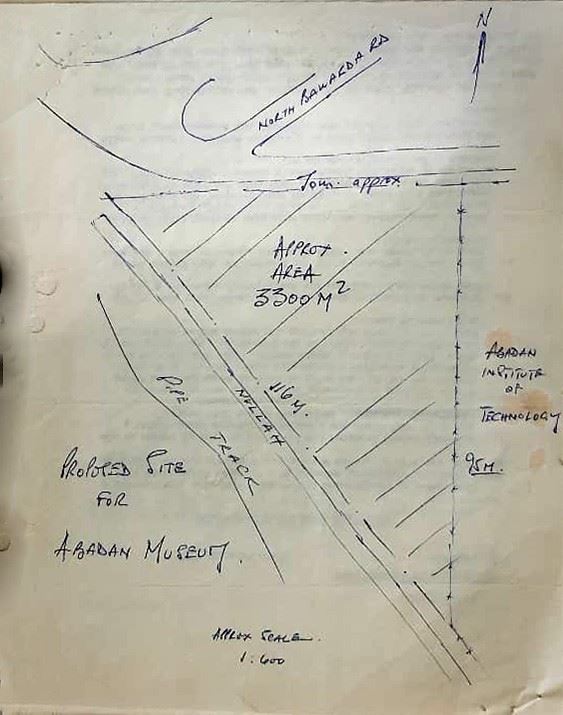 N
NORTH BAWARDA RD
70m. approx.
APPROX.
AREA
3300 M²
ABADAN
INSTITUTE
OF
TECHNOLOGY
116M.
NULLAH
PIPE TRACK
95M.
PROPOSED SITE
FOR
ABADAN MUSEUM.
APPROX SCALE.
1:600